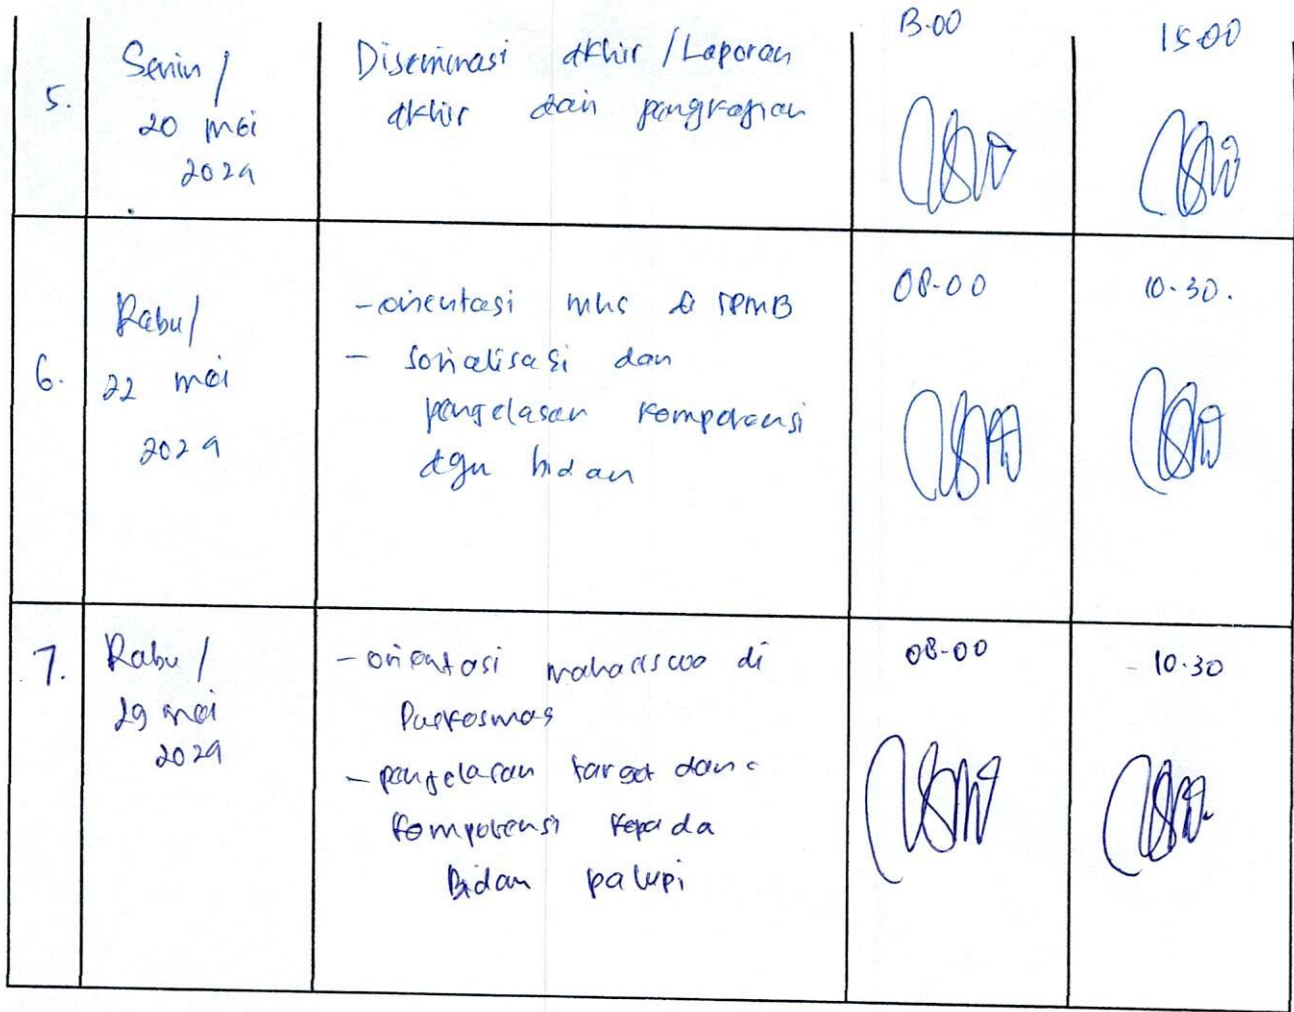 5.
Senin /
20 mei
2024
Diseminasi akhir / Laporan
akhir dari pengkajian
13.00
15.00
6.
Rabu /
22 mei
2024
- orientasi mhs di TPMB
- sosialisasi dan
penjelasan kompetensi
dgn bidan
08.00
10.30.
7.
Rabu /
29 mei
2024
- orientasi mahasiswa di
Puskesmas
- penjelasan target dan
kompetensi kepada
Bidan palupi
08.00
- 10.30